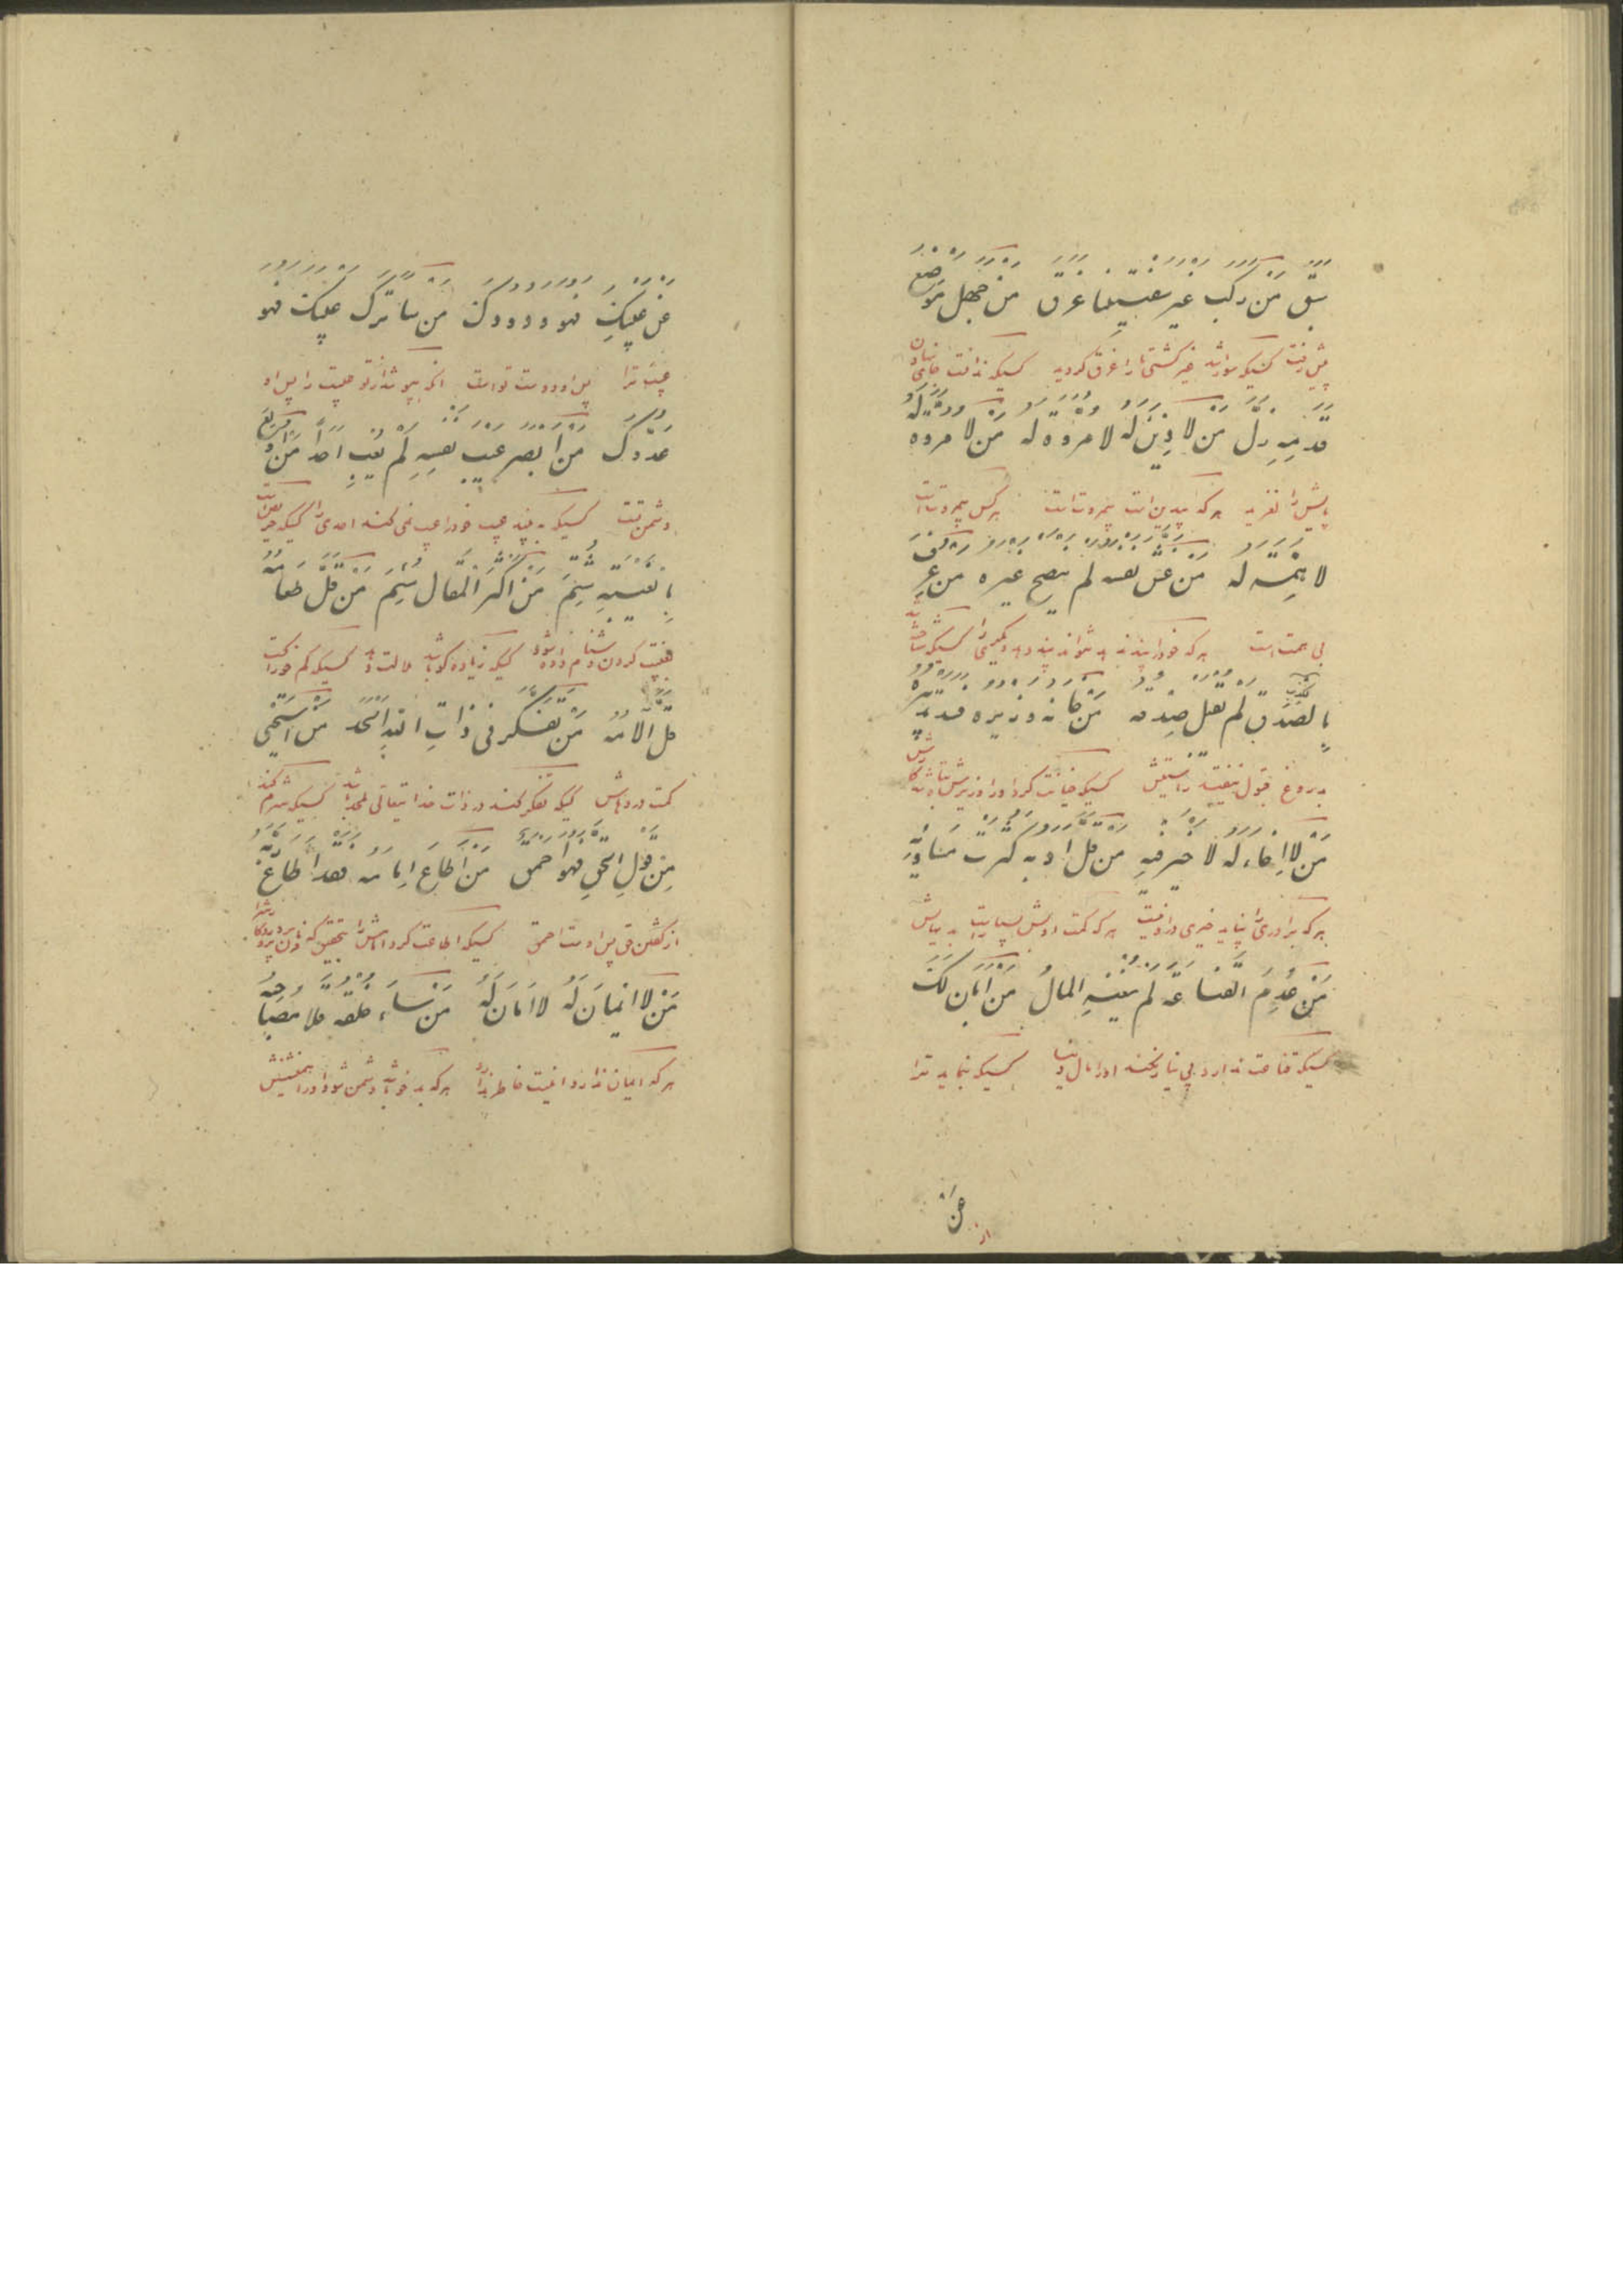 سبق من رکب غیر سفینتنا غرق من جهل موضع
پیش رفت کسیکه سوار شد غیر کشتی ما را غرق گردید کسیکه ندانست جای نهادن
قدمیه زل من لا دین له لا مروة له من لا مروة له
پایش را لغزید هر که بیدین است بیمروت است هر کس بیمروت است
لا همة له من غش نفسه لم ینصح غیره من عرف
بی همت است هر که خود را پند ندهد نتواند پند دهد دیگری را کسیکه شناخته شد
بالکذب بالصدق لم یقبل صدقه من خانه وزیره فسد تدبیره
بدروغ قبول نیفتید راستیش کسیکه خیانت کرد او را وزیرش تباه شد کارش
من لا اخاء له لا خیر فیه من قل ادبه کثرت مساویه
هر که برادری را نپاید خیری در او نیست هر که کمست ادبش بسیار است بدیهاش
من عدم القناعة لم یغنه المال من ابان لک
کسیکه قناعت ندارد بی نیاز نکند او را مال دنیا کسیکه بنماید ترا
عن
از
عن عیبک فهو ودودک من ساتر عیبک فهو
عیب ترا پس او دوست تو است انکه بپوشد از تو عیبت را پس او
عدوک من ابصر عیب نفسه لم یعب احدا من
دشمن تست کسیکه به بیند عیب خود را عیب نمی کند احدی را کسیکه
بالغیبة شتم من اکثر المقال سئم من قل طعامه
بغیبت کردن دشنام داده شود کسیکه زیاده گو باشد کسیکه کم خوراکست
قل آلامه من تفکر فی ذات الله الحد من استحیی
کمست دردهاش کسیکه تفکر کند در ذات خدایتعالی ملحد باشد کسیکه شرم کند
من قول الحق فهو احمق من اطاع امامه فقد اطاع ربه
از گفتن حق پس اوست احمق کسیکه اطاعت کرد امامش را بتحقیق که فرمان برده پروردگارش را
من لا ایمان له لا امان له من ساء خلقه قلاه مصاحبه
هر که ایمان ندارد هر که بد خو باشد دشمن شود او را همنشینش